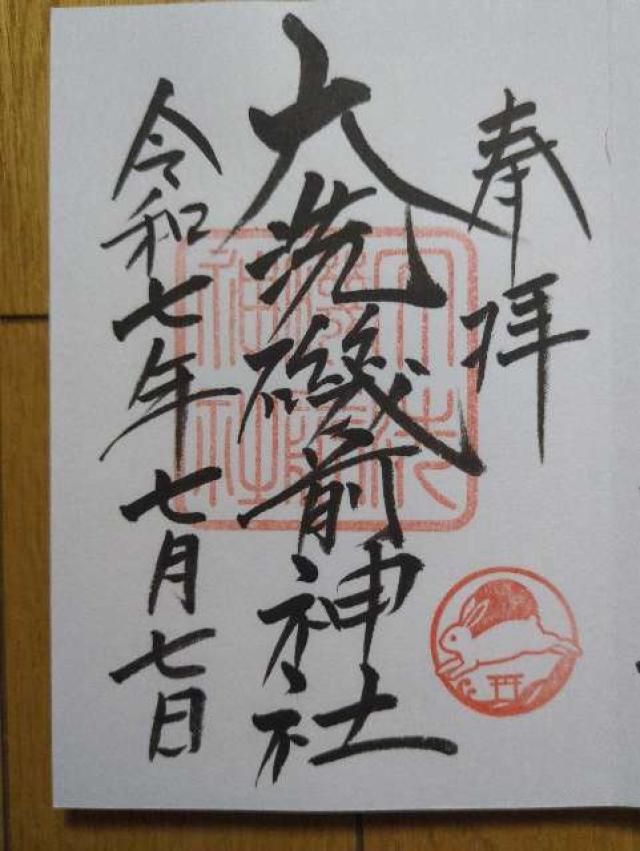 奉拝
大洗磯前神社
令和七年七月七日
大洗磯前神社